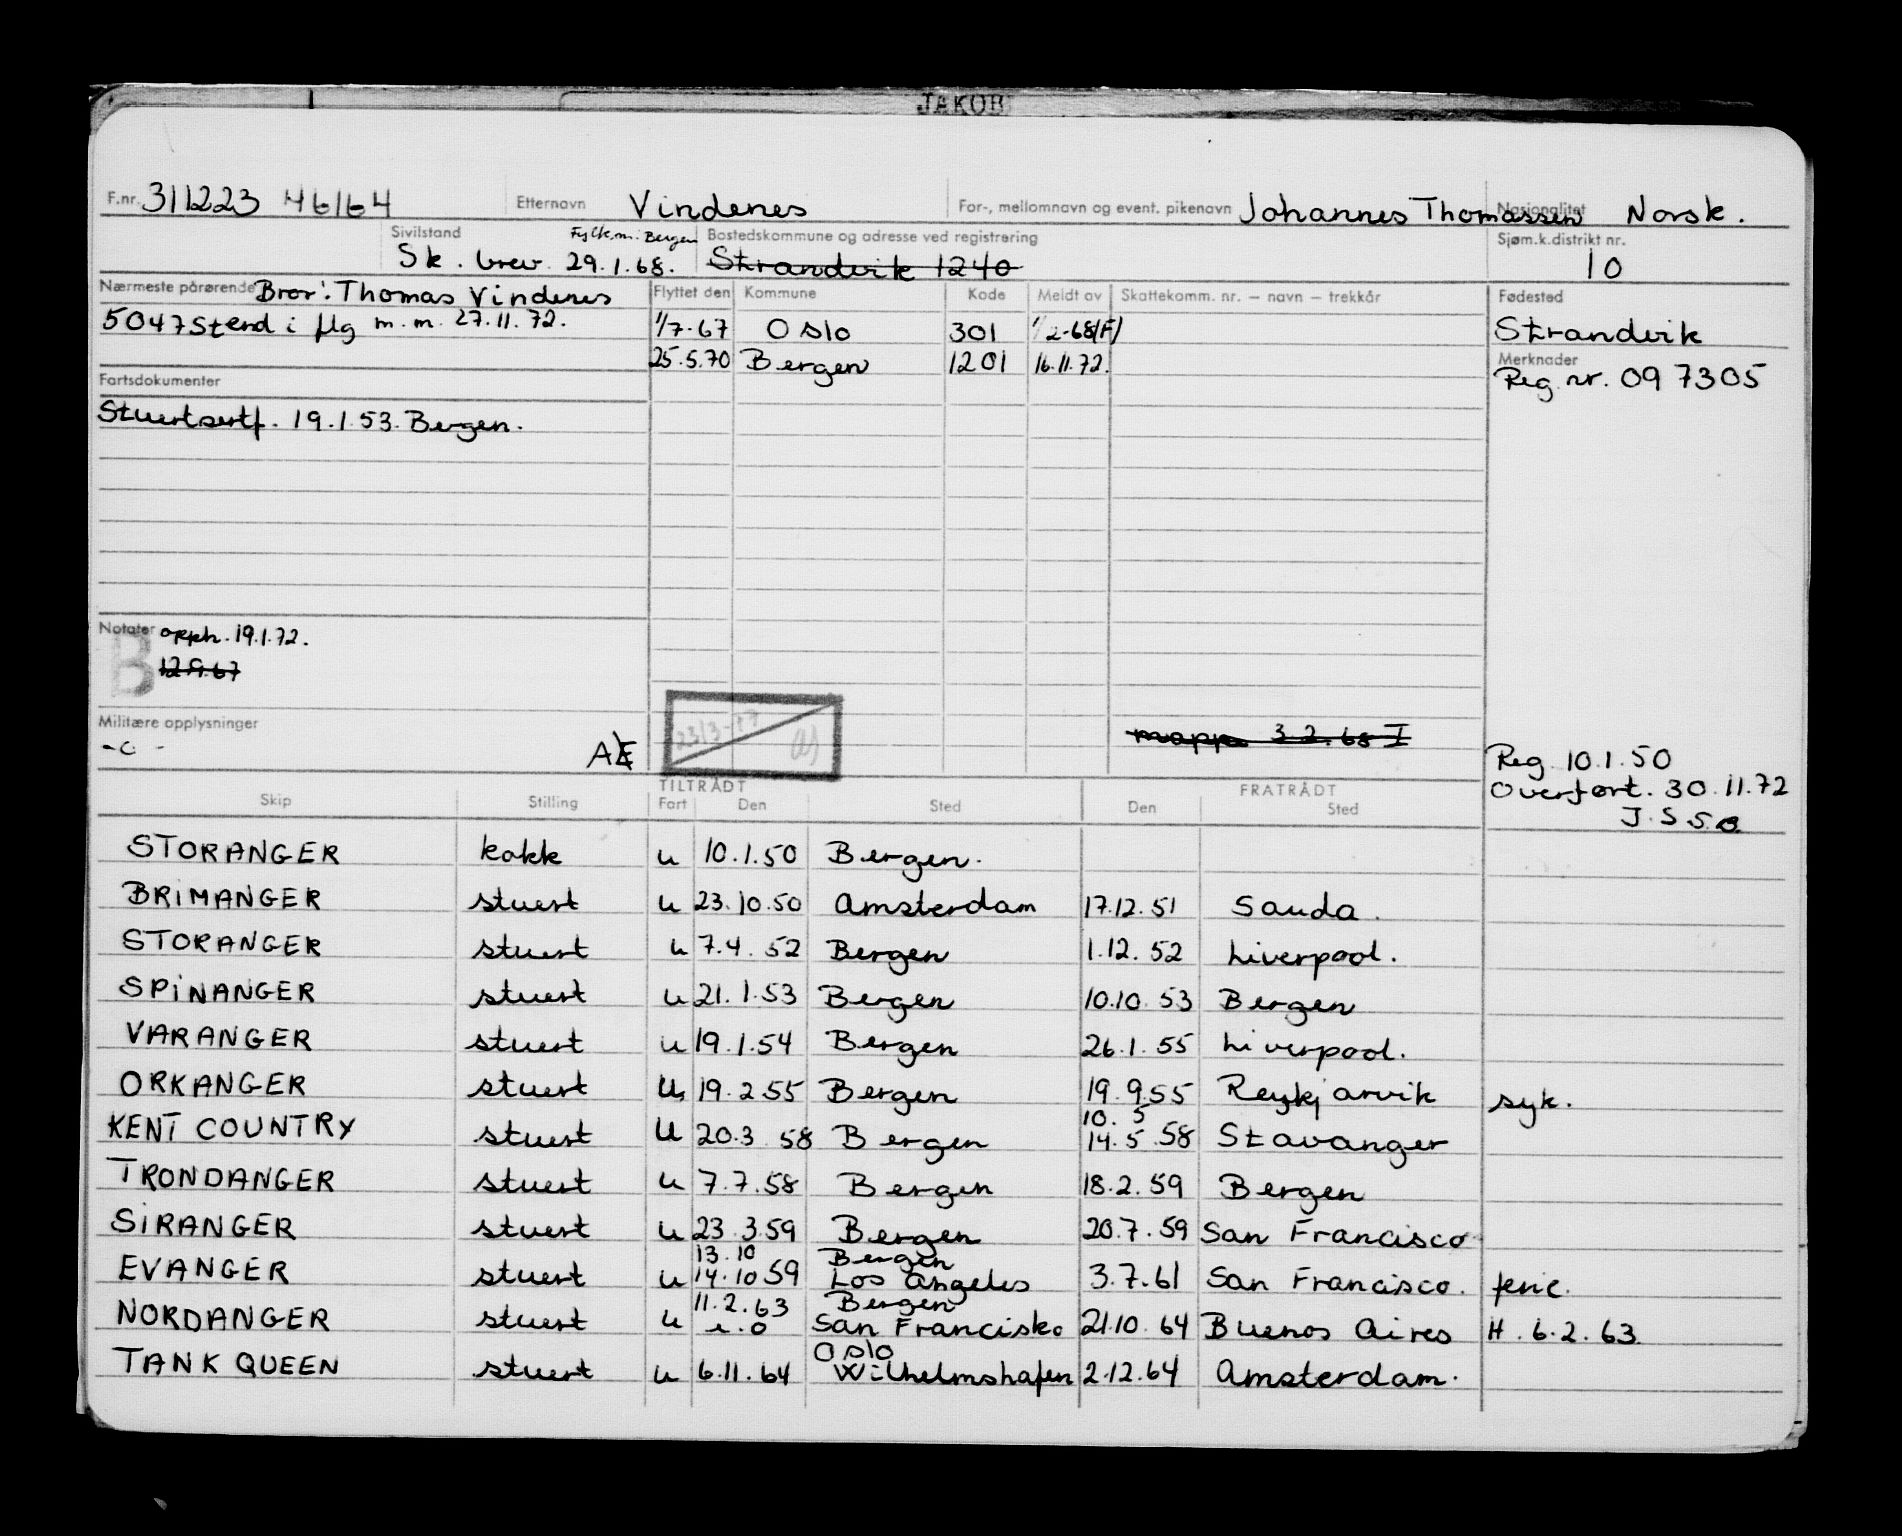 JAKOB
F.nr. 311223 46164 Etternavn Vindenes For-, mellomnavn og event. pikenavn Johannes Thomassen Nasjonalitet Norsk.
Sivilstand Fylk.m. Bergen Bostedskommune og adresse ved registrering Sjøm.k.distrikt nr.
Sk. brev 29.1.68. Strandvik 1240 10
Nærmeste pårørende Bror: Thomas Vindenes Flyttet den Kommune Kode Meldt av Skattekomm. nr. – navn – trekkår Fødested
5047 Stend i flg m.m. 27.11.72. 1/7-67 Oslo 301 1/2-68(F) Strandvik
25.5.70 Bergen 1201 16.11.72. Merknader
Fartsdokumenter Reg. nr. 097305
Stuertsertf. 19.1.53. Bergen.
Notater opph. 19.1.72.
B 12.9.67
Militære opplysninger
AE 23/3-77 mappe 3.2.68 I
Reg 10.1.50
Overført. 30.11.72
J.S.S.
TILTRÅDT FRATRÅDT
Skip Stilling Fart Den Sted Den Sted
STORANGER kokk u 10.1.50 Bergen.
BRIMANGER stuert u 23.10.50 Amsterdam 17.12.51 Sauda.
STORANGER stuert u 7.4.52 Bergen 1.12.52 Liverpool.
SPINANGER stuert u 21.1.53 Bergen 10.10.53 Bergen
VARANGER stuert u 19.1.54 Bergen 26.1.55 Liverpool.
ORKANGER stuert u 19.2.55 Bergen 19.9.55 Reykjarvik syk.
10.5
KENT COUNTRY stuert u 20.3.58 Bergen 14.5.58 Stavanger
TRONDANGER stuert u 7.7.58 Bergen 18.2.59 Bergen
SIRANGER stuert u 23.3.59 Bergen 20.7.59 San Francisco
13.10 Bergen
EVANGER stuert u 14.10.59 Los Angeles 3.7.61 San Francisco. ferie.
11.2.63 Bergen
NORDANGER stuert u San Francisko 21.10.64 Buenos Aires H. 6.2.63.
Oslo
TANK QUEEN stuert u 6.11.64 Wilhelmshafen 2.12.64 Amsterdam.